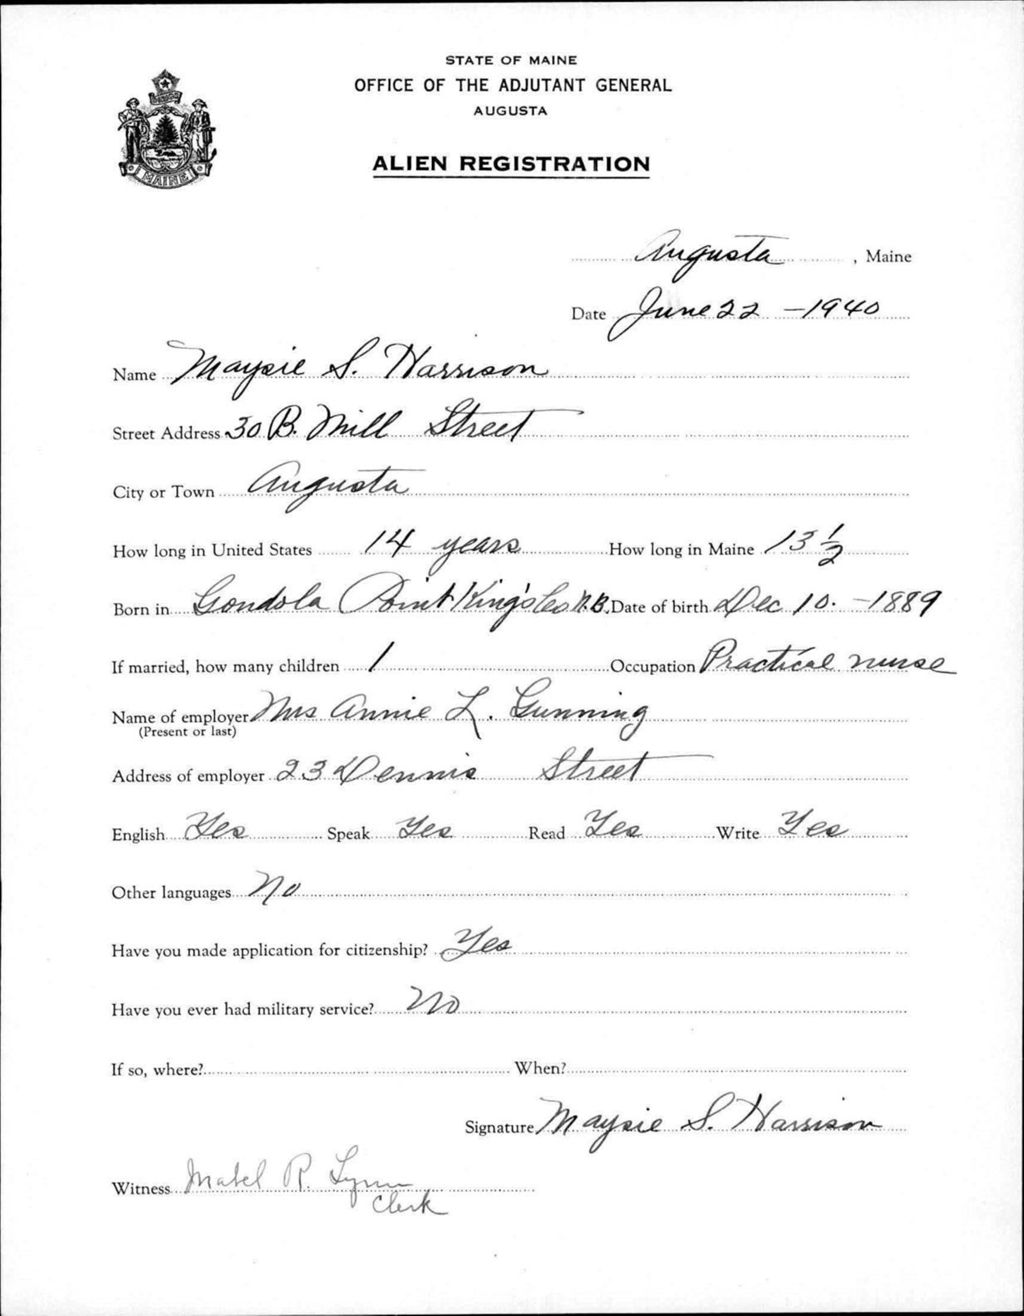 STATE OF MAINE
OFFICE OF THE ADJUTANT GENERAL
AUGUSTA
ALIEN REGISTRATION
MAINE
Augusta, Maine
Date June 22 - 1940
Name Maysie S. Harrison
Street Address 30 B. Mill Street
City or Town Augusta
How long in United States 14 years How long in Maine 13 1/2
Born in Gondola Point King's Co N.B. Date of birth Dec 10. - 1889
If married, how many children 1 Occupation Practical nurse
Name of employer Mrs Annie L. Gunning
(Present or last)
Address of employer 23 Dennis Street
English Yes Speak Yes Read Yes Write Yes
Other languages No
Have you made application for citizenship? Yes
Have you ever had military service? No
If so, where? When?
Signature Maysie S. Harrison
Witness Mabel R. Lynn
Clerk